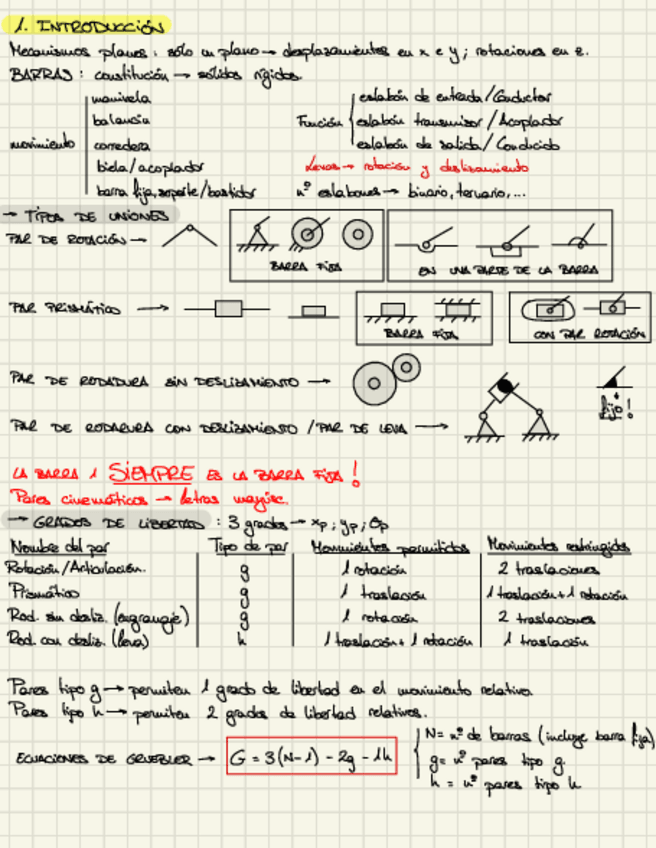 1. INTRODUCCIÓN
Mecanismos planos: sólo un plano → desplazamientos en x e y; rotaciones en z.
BARRAS: constitución → sólidos rígidos.
movimiento
manivela
balancín
corredera
biela/acoplador
barra fija, soporte/bastidor
Función
eslabón de entrada/Conductor
eslabón transmisor/Acoplador
eslabón de salida/Conducido
Levas → rotación y deslizamiento
nº eslabones → binario, ternario, ...
→ TIPOS DE UNIONES
PAR DE ROTACIÓN →
BARRA FIJA
EN UNA PARTE DE LA BARRA
PAR PRISMÁTICO →
BARRA FIJA
CON PAR ROTACIÓN
PAR DE RODADURA SIN DESLIZAMIENTO →
fijo!
PAR DE RODADURA CON DESLIZAMIENTO / PAR DE LEVA →
LA BARRA 1 SIEMPRE ES LA BARRA FIJA!
Pares cinemáticos → letras mayúsc.
→ GRADOS DE LIBERTAD: 3 grados → xp; yp; θp
Nombre del par Tipo de par Movimientos permitidos Movimientos restringidos
Rotación/Articulación. g 1 rotación 2 traslaciones
Prismático g 1 traslación 1 traslación + 1 rotación
Rod. sin desliz. (engranaje) g 1 rotación 2 traslaciones
Rod. con desliz. (leva) h 1 traslación + 1 rotación 1 traslación
Pares tipo g → permiten 1 grado de libertad en el movimiento relativo.
Pares tipo h → permiten 2 grados de libertad relativos.
ECUACIONES DE GRUEBLER → G = 3(N-1) - 2g - 1h
N = nº de barras (incluye barra fija)
g = nº pares tipo g.
h = nº pares tipo h